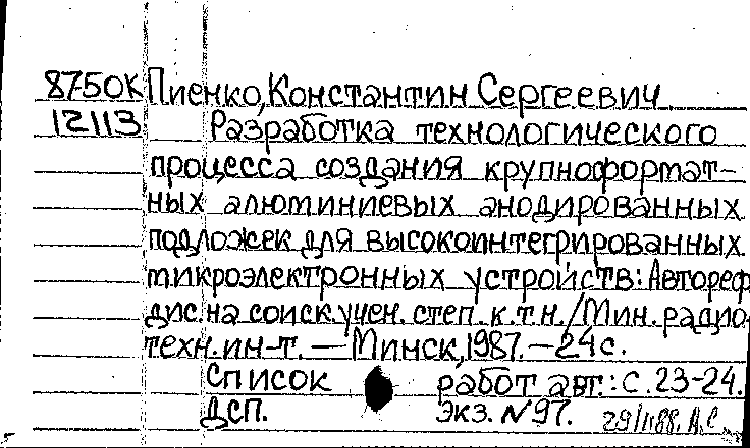 87-50К Пиенко, Константин Сергеевич
12113 Разработка технологического
процесса создания крупноформат-
ных алюминиевых анодированных
подложек для высокоинтегрированных
микроэлектронных устройств: Автореф
дис. на соиск. учен. степ. к.т.н. / Мин. радио-
техн. ин-т. — Минск, 1987. — 24 с.
Список работ авт.: с. 23-24.
ДСП. Экз. №97.